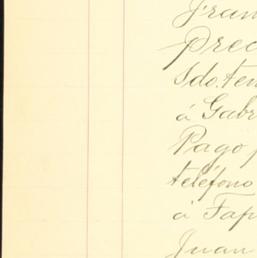 Fran
prec
Sdo. ten
á Gabr
Pago p
teléfono
á Tap
Juan